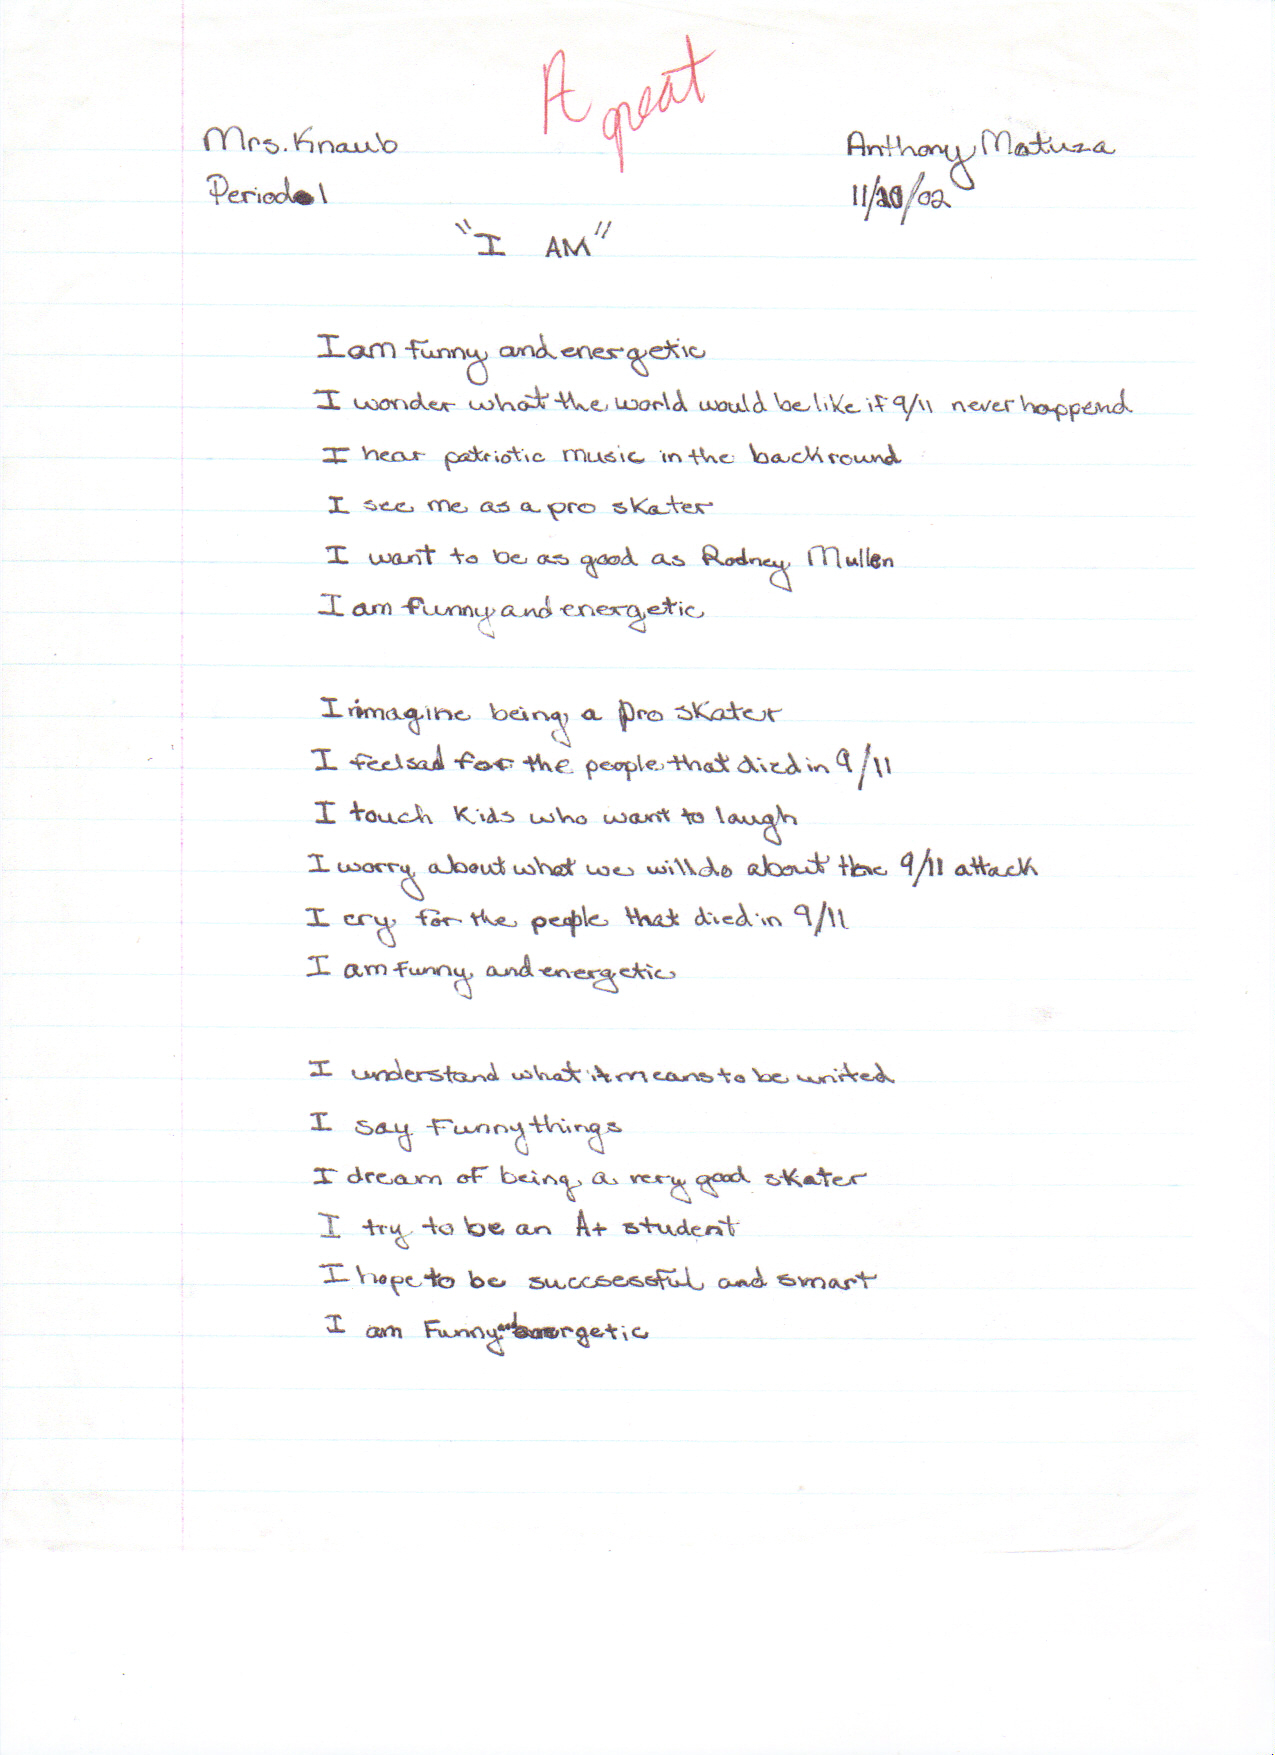 A great
Mrs. Knaub
Anthony Matuza
Period 1
11/20/02
"I AM"
I am funny and energetic
I wonder what the world would be like if 9/11 never happend
I hear patriotic music in the backround
I see me as a pro skater
I want to be as good as Rodney Mullen
I am funny and energetic
I imagine being a pro skater
I feel sad for the people that died in 9/11
I touch kids who want to laugh
I worry about what we will do about the 9/11 attack
I cry for the people that died in 9/11
I am funny and energetic
I understand what it means to be united
I say Funny things
I dream of being a very good skater
I try to be an A+ student
I hope to be succsessful and smart
I am Funny and energetic